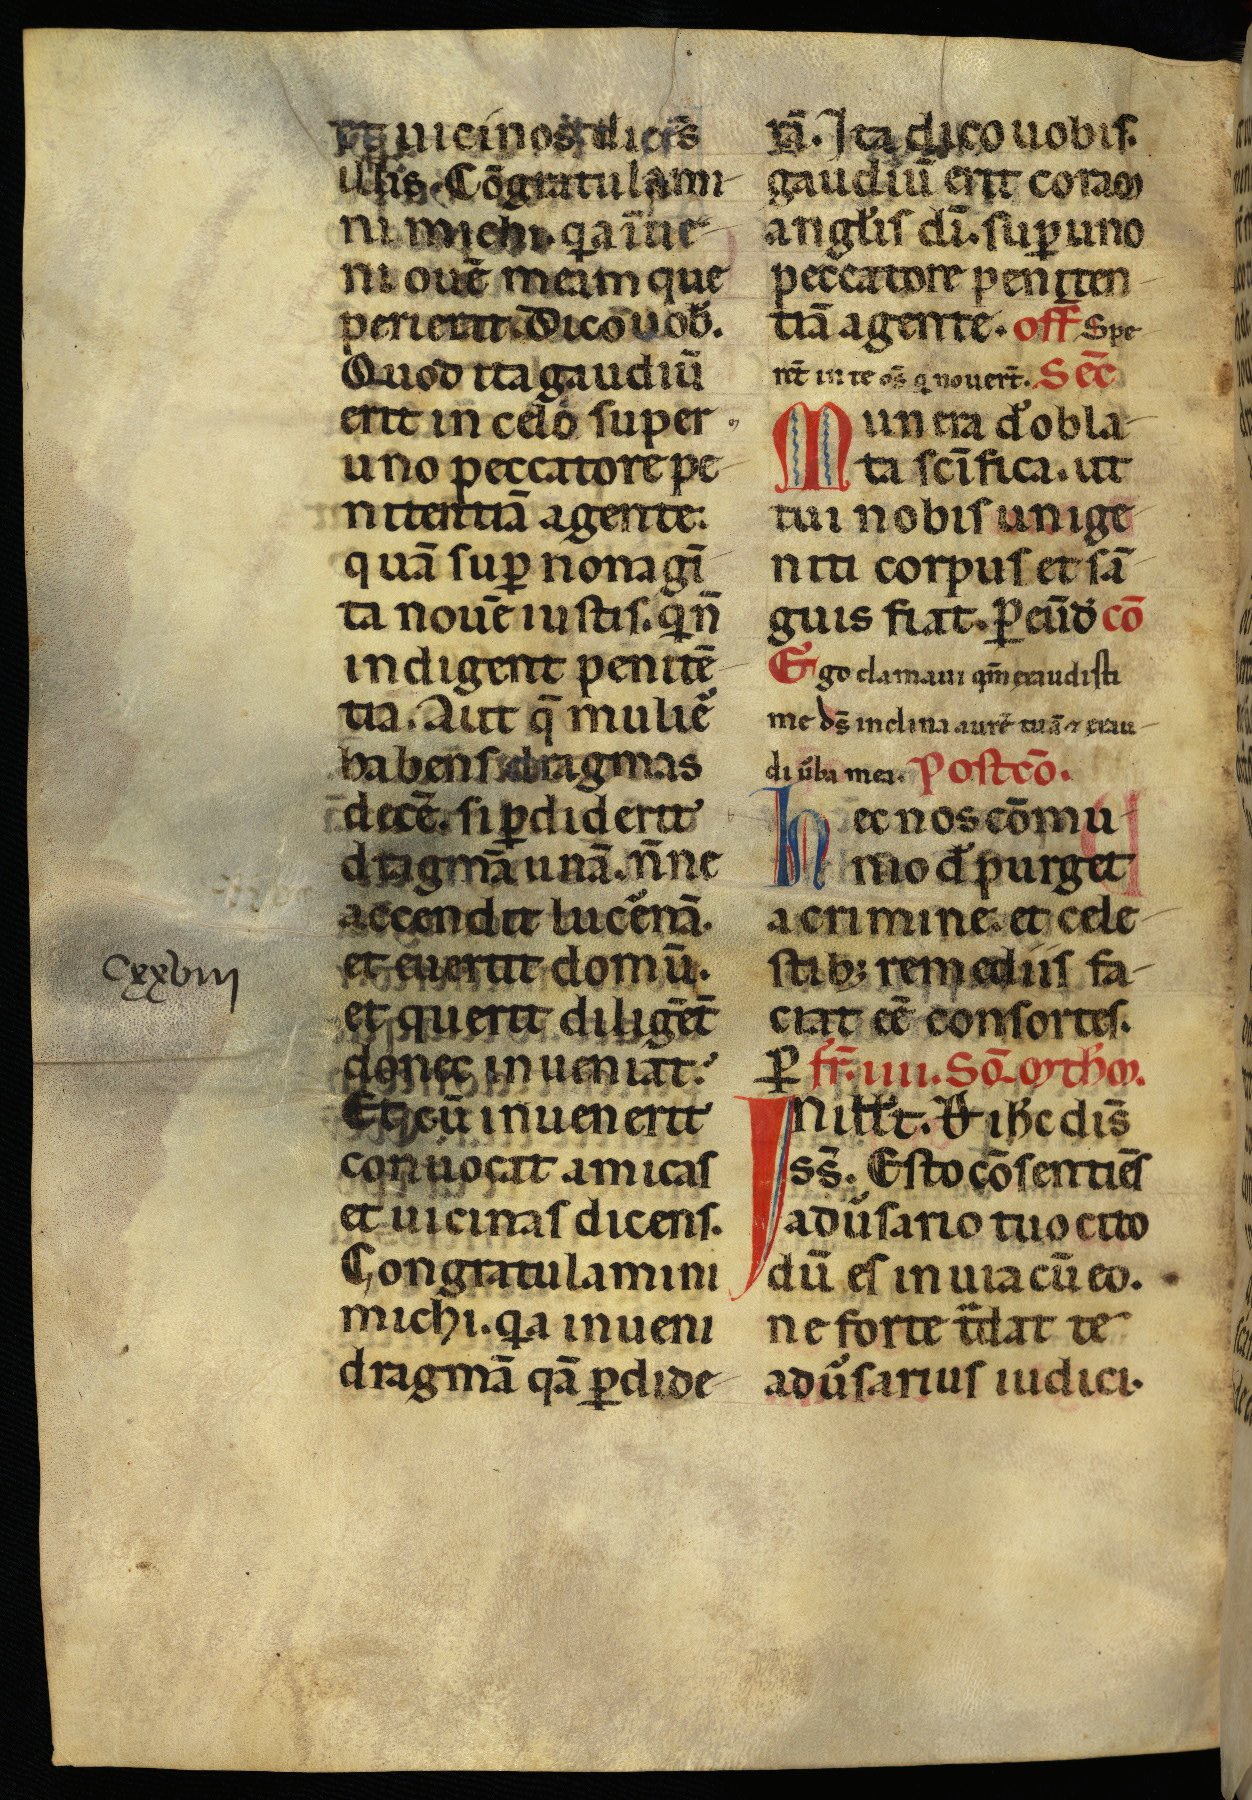 et uicinos dicēs
illis. Cōgratulami
ni michi. qa īue
ni ouē meam que
perierat. Dico uob̄.
Quod ita gaudiū
erit in celo super
uno peccatore pe
nitentiā agente:
quā suꝑ nonagī
ta nouē iustis. q̄ n̄
indigent penitē
tia. Aut q̄ mulie᷑
habens dragmas
decē. si ꝑdiderit
dragmā unā. nn̄e
accendit lucernā.
et euertit domū.
et querit diligēt̄
donec inueniat:
Et cū inuenerit
conuocat amicas
et uicinas dicens.
Congratulamini
michi. qa inueni
dragmā qā ꝑdide
cxxviii
rā. Ita dico uobis.
gaudiū erit coram
anglis dī. suꝑ uno
peccatore peniten
tiā agente. off̄ Spe
rēt in te oꝫ̄ q nouert̄. Sēc
Munera d᷑ obla
ta scīfica. ut
tui nobis unige
niti corpus et sā
guis fiat. ꝑ eūd᷑ cō
Ego clamaui qm̄ exaudisti
me ds̄ inclina aurē tuā ⁊ exau
di ūba mea. Postcō.
hec nos cōmu
nio d᷑ purget
a crimine. et cele
stibꝫ remediis fa
ciat eē consortes.
ꝑ fr̄. iiii. Sō. mthm.
In illt̄. D̄ ihc dis̄
ss̄. Esto cōsentiēs
adūsario tuo cito
dū es in uia cū eo.
ne forte t̄dat te
adūsarius iudici.